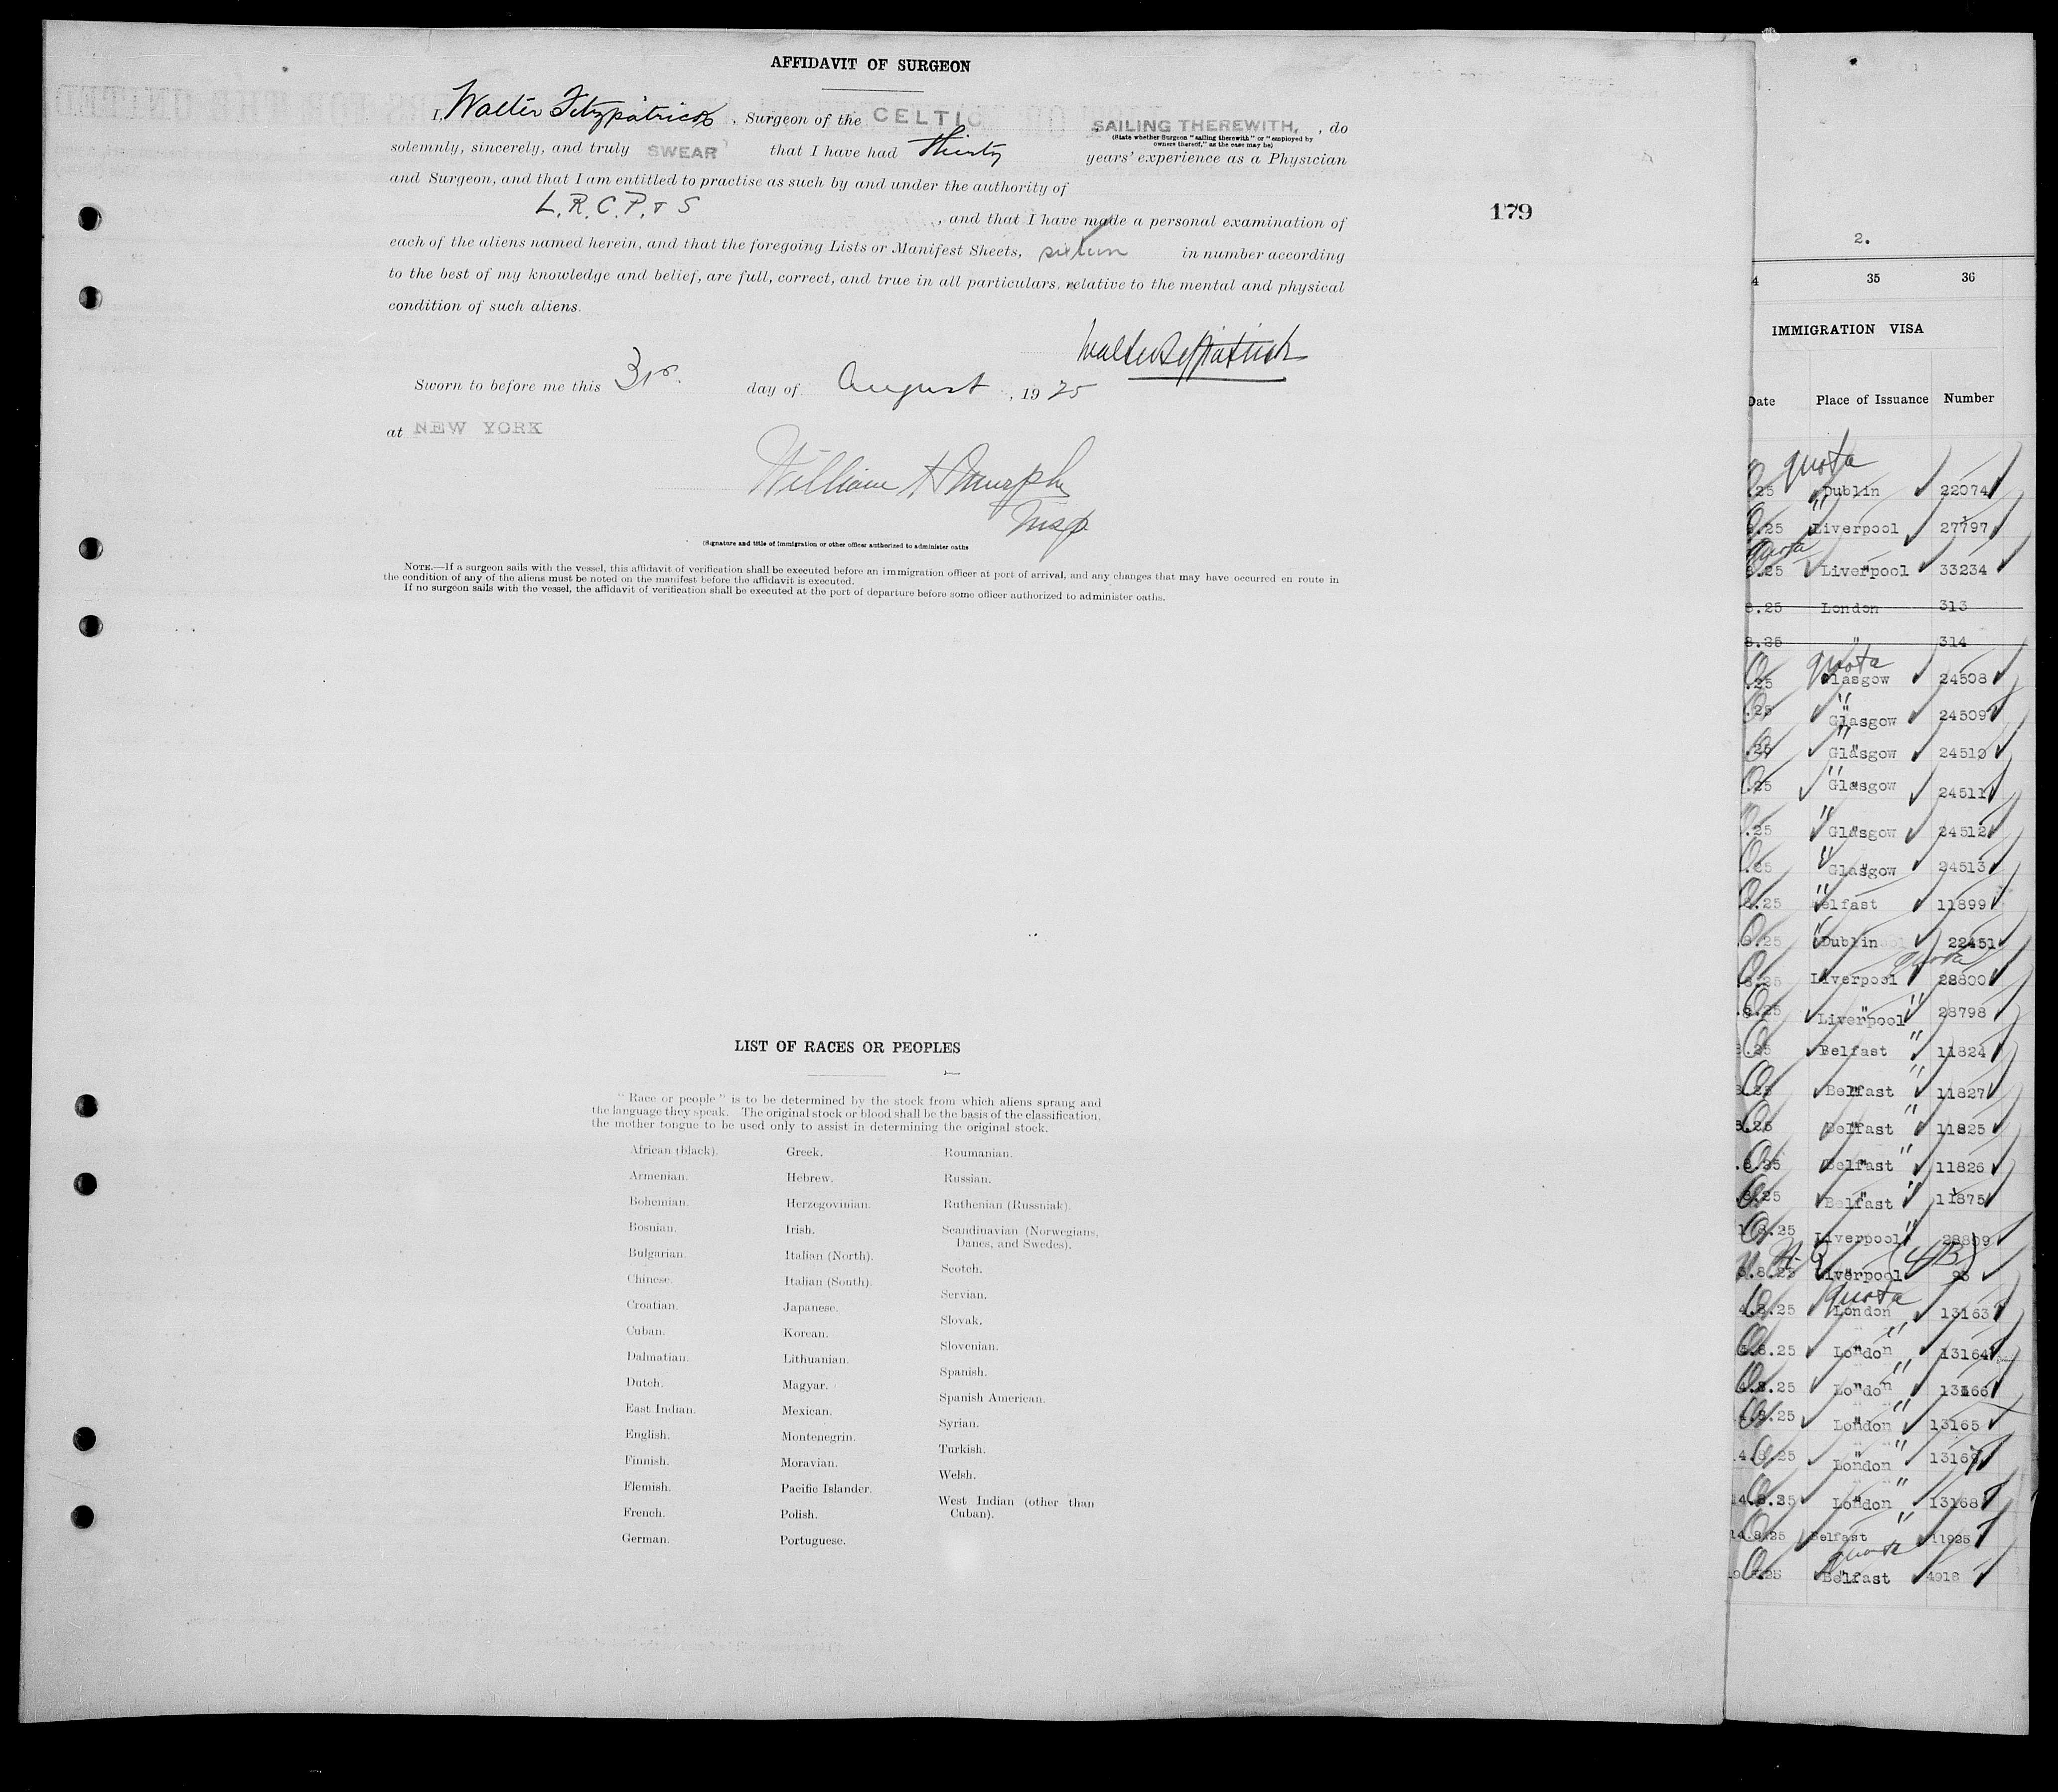 AFFIDAVIT OF SURGEON
I, Walter Fitzpatrick, Surgeon of the CELTIC SAILING THEREWITH, , do
(State whether Surgeon "sailing therewith" or "employed by
owners thereof," as the case may be)
solemnly, sincerely, and truly SWEAR that I have had Thirty years' experience as a Physician
and Surgeon, and that I am entitled to practise as such by and under the authority of
L.R.C.P. & S , and that I have made a personal examination of
each of the aliens named herein, and that the foregoing Lists or Manifest Sheets, sixteen in number according
to the best of my knowledge and belief, are full, correct, and true in all particulars, relative to the mental and physical
condition of such aliens.
Walter Fitzpatrick
Sworn to before me this 31st day of August , 1925
at NEW YORK
William H Murphy
Insp
(Signature and title of immigration or other officer authorized to administer oaths
NOTE.—If a surgeon sails with the vessel, this affidavit of verification shall be executed before an immigration officer at port of arrival, and any changes that may have occurred en route in
the condition of any of the aliens must be noted on the manifest before the affidavit is executed.
If no surgeon sails with the vessel, the affidavit of verification shall be executed at the port of departure before some officer authorized to administer oaths.
179
LIST OF RACES OR PEOPLES
"Race or people" is to be determined by the stock from which aliens sprang and
the language they speak. The original stock or blood shall be the basis of the classification,
the mother tongue to be used only to assist in determining the original stock.
African (black).
Armenian.
Bohemian.
Bosnian.
Bulgarian.
Chinese.
Croatian.
Cuban.
Dalmatian.
Dutch.
East Indian.
English.
Finnish.
Flemish.
French.
German.
Greek.
Hebrew.
Herzegovinian.
Irish.
Italian (North).
Italian (South).
Japanese.
Korean.
Lithuanian.
Magyar.
Mexican.
Montenegrin.
Moravian.
Pacific Islander.
Polish.
Portuguese.
Roumanian.
Russian.
Ruthenian (Russniak).
Scandinavian (Norwegians,
Danes, and Swedes).
Scotch.
Servian.
Slovak.
Slovenian.
Spanish.
Spanish American.
Syrian.
Turkish.
Welsh.
West Indian (other than
Cuban).
2.
4 35 36
IMMIGRATION VISA
Date Place of Issuance Number
quota
.25 Dublin 22074
.25 " Liverpool 27797
quota
8.25 Liverpool 33234
8.25 London 313
8.25 " 314
quota
.25 Glasgow 24508
.25 " Glasgow 24509
.25 " Glasgow 24510
.25 " Glasgow 24511
.25 " Glasgow 24512
.25 " Glasgow 24513
8.25 " Belfast 11899
8.25 " Dublin 22451
quota
8.25 Liverpool 28800
.8.25 Liverpool " 28798
8.25 Belfast " 11824
8.25 Belfast " 11827
8.25 Belfast " 11825
.8.25 Belfast " 11826
.8.25 Belfast " 11875
1.8.25 Liverpool " 28809
N.Q. (4B)
8.25 Liverpool 93
quota
4.8.25 London 13163
8.25 London " 13164
4.8.25 London " 13166
4.8.25 London " 13165
4.8.25 London " 13169
14.8.25 London " 13168
14.8.25 Belfast " 11925
quota
.25 Belfast 4918